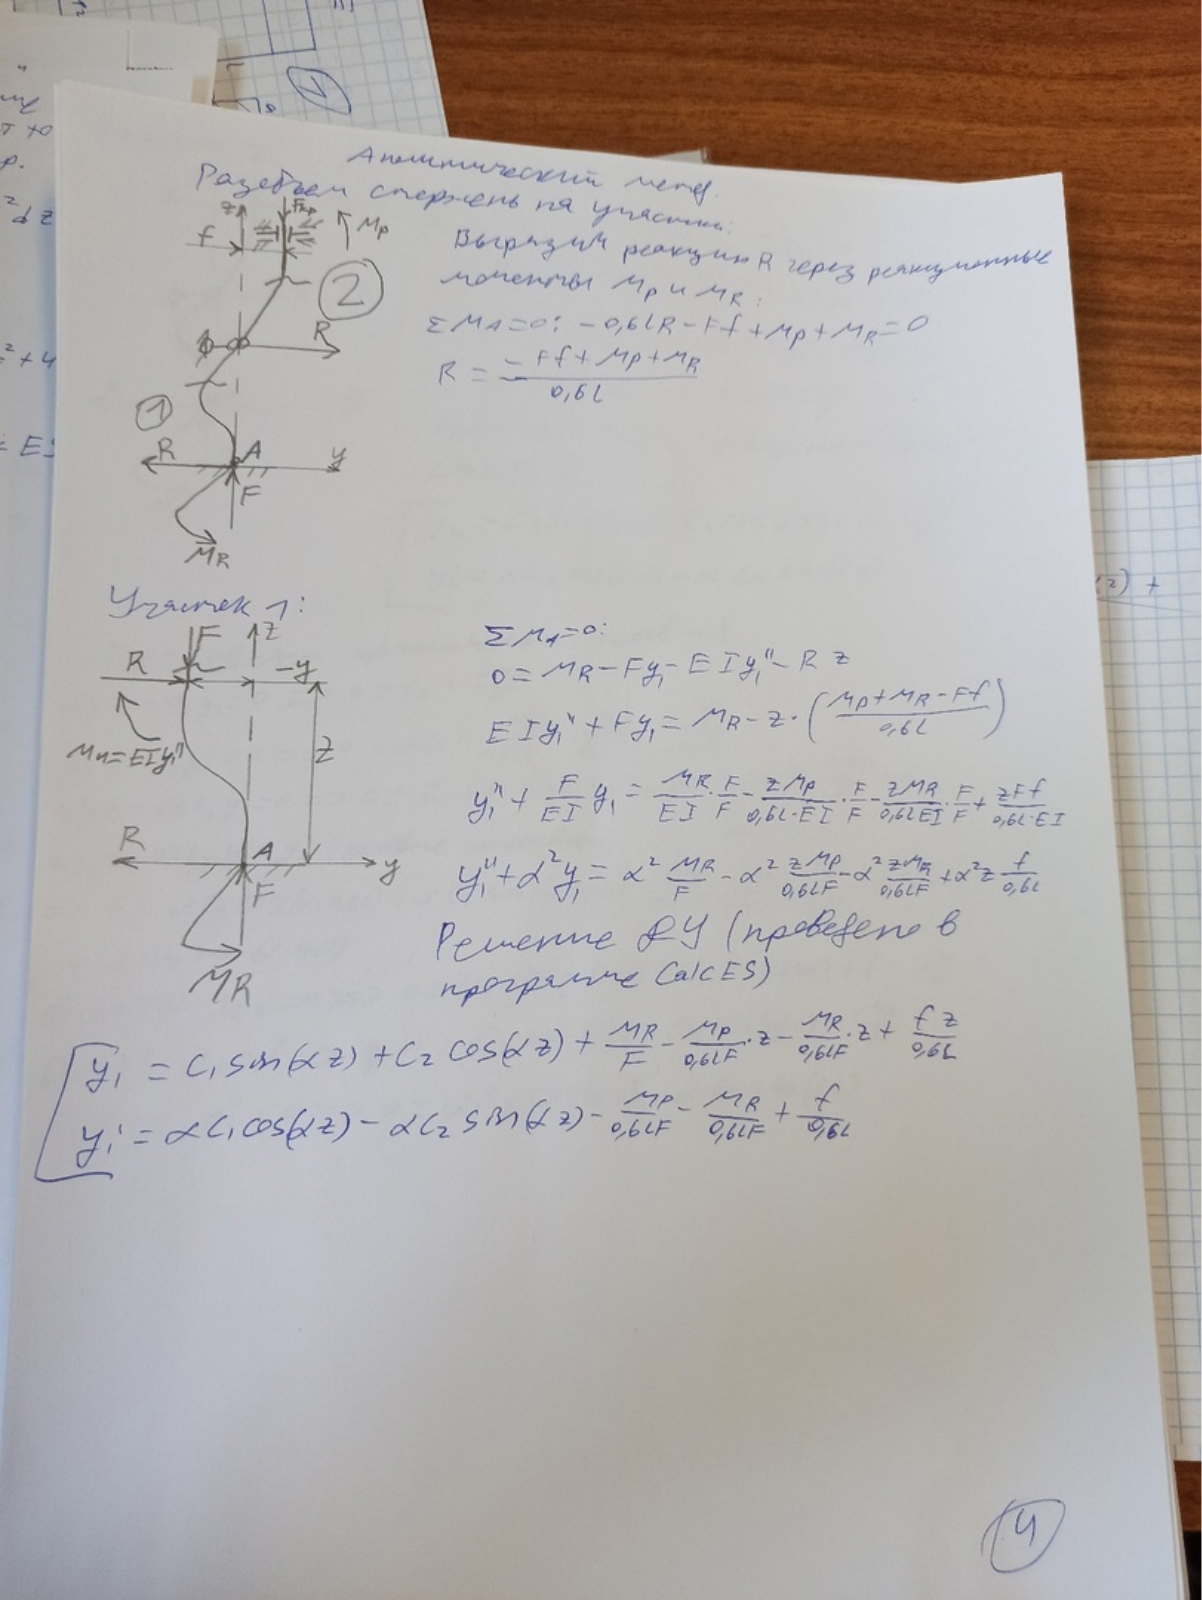 Аналитический метод.
Разобьем стержень на участки:
Выразим реакцию R через реакционные
моменты Mp и MR:
ΣMA=0: -0,6LR-Ff+Mp+MR=0
R = (-Ff+Mp+MR)/(0,6L)
z
Fкр
Mp
f
2
R
1
R
A
y
F
MR
Участок 1:
F
z
R
-y
Mи=EIy₁''
z
R
A
y
F
MR
ΣMA=0:
0=MR-Fy₁-EIy₁''-Rz
EIy₁''+Fy₁=MR-z·((Mp+MR-Ff)/(0,6L))
y₁''+(F/EI)y₁=(MR/EI)·(F/F)-(zMp/(0,6L·EI))·(F/F)-(zMR/(0,6LEI))·(F/F)+(zFf/(0,6L·EI))
y₁''+α²y₁=α²(MR/F)-α²(zMp/(0,6LF))-α²(zMR/(0,6LF))+α²z(f/(0,6L))
Решение ДУ (проведено в
программе CalcES)
y₁=C₁sin(αz)+C₂cos(αz)+(MR/F)-(Mp/(0,6LF))·z-(MR/(0,6LF))·z+(fz/(0,6L))
y₁'=αC₁cos(αz)-αC₂sin(αz)-(Mp/(0,6LF))-(MR/(0,6LF))+(f/(0,6L))
4